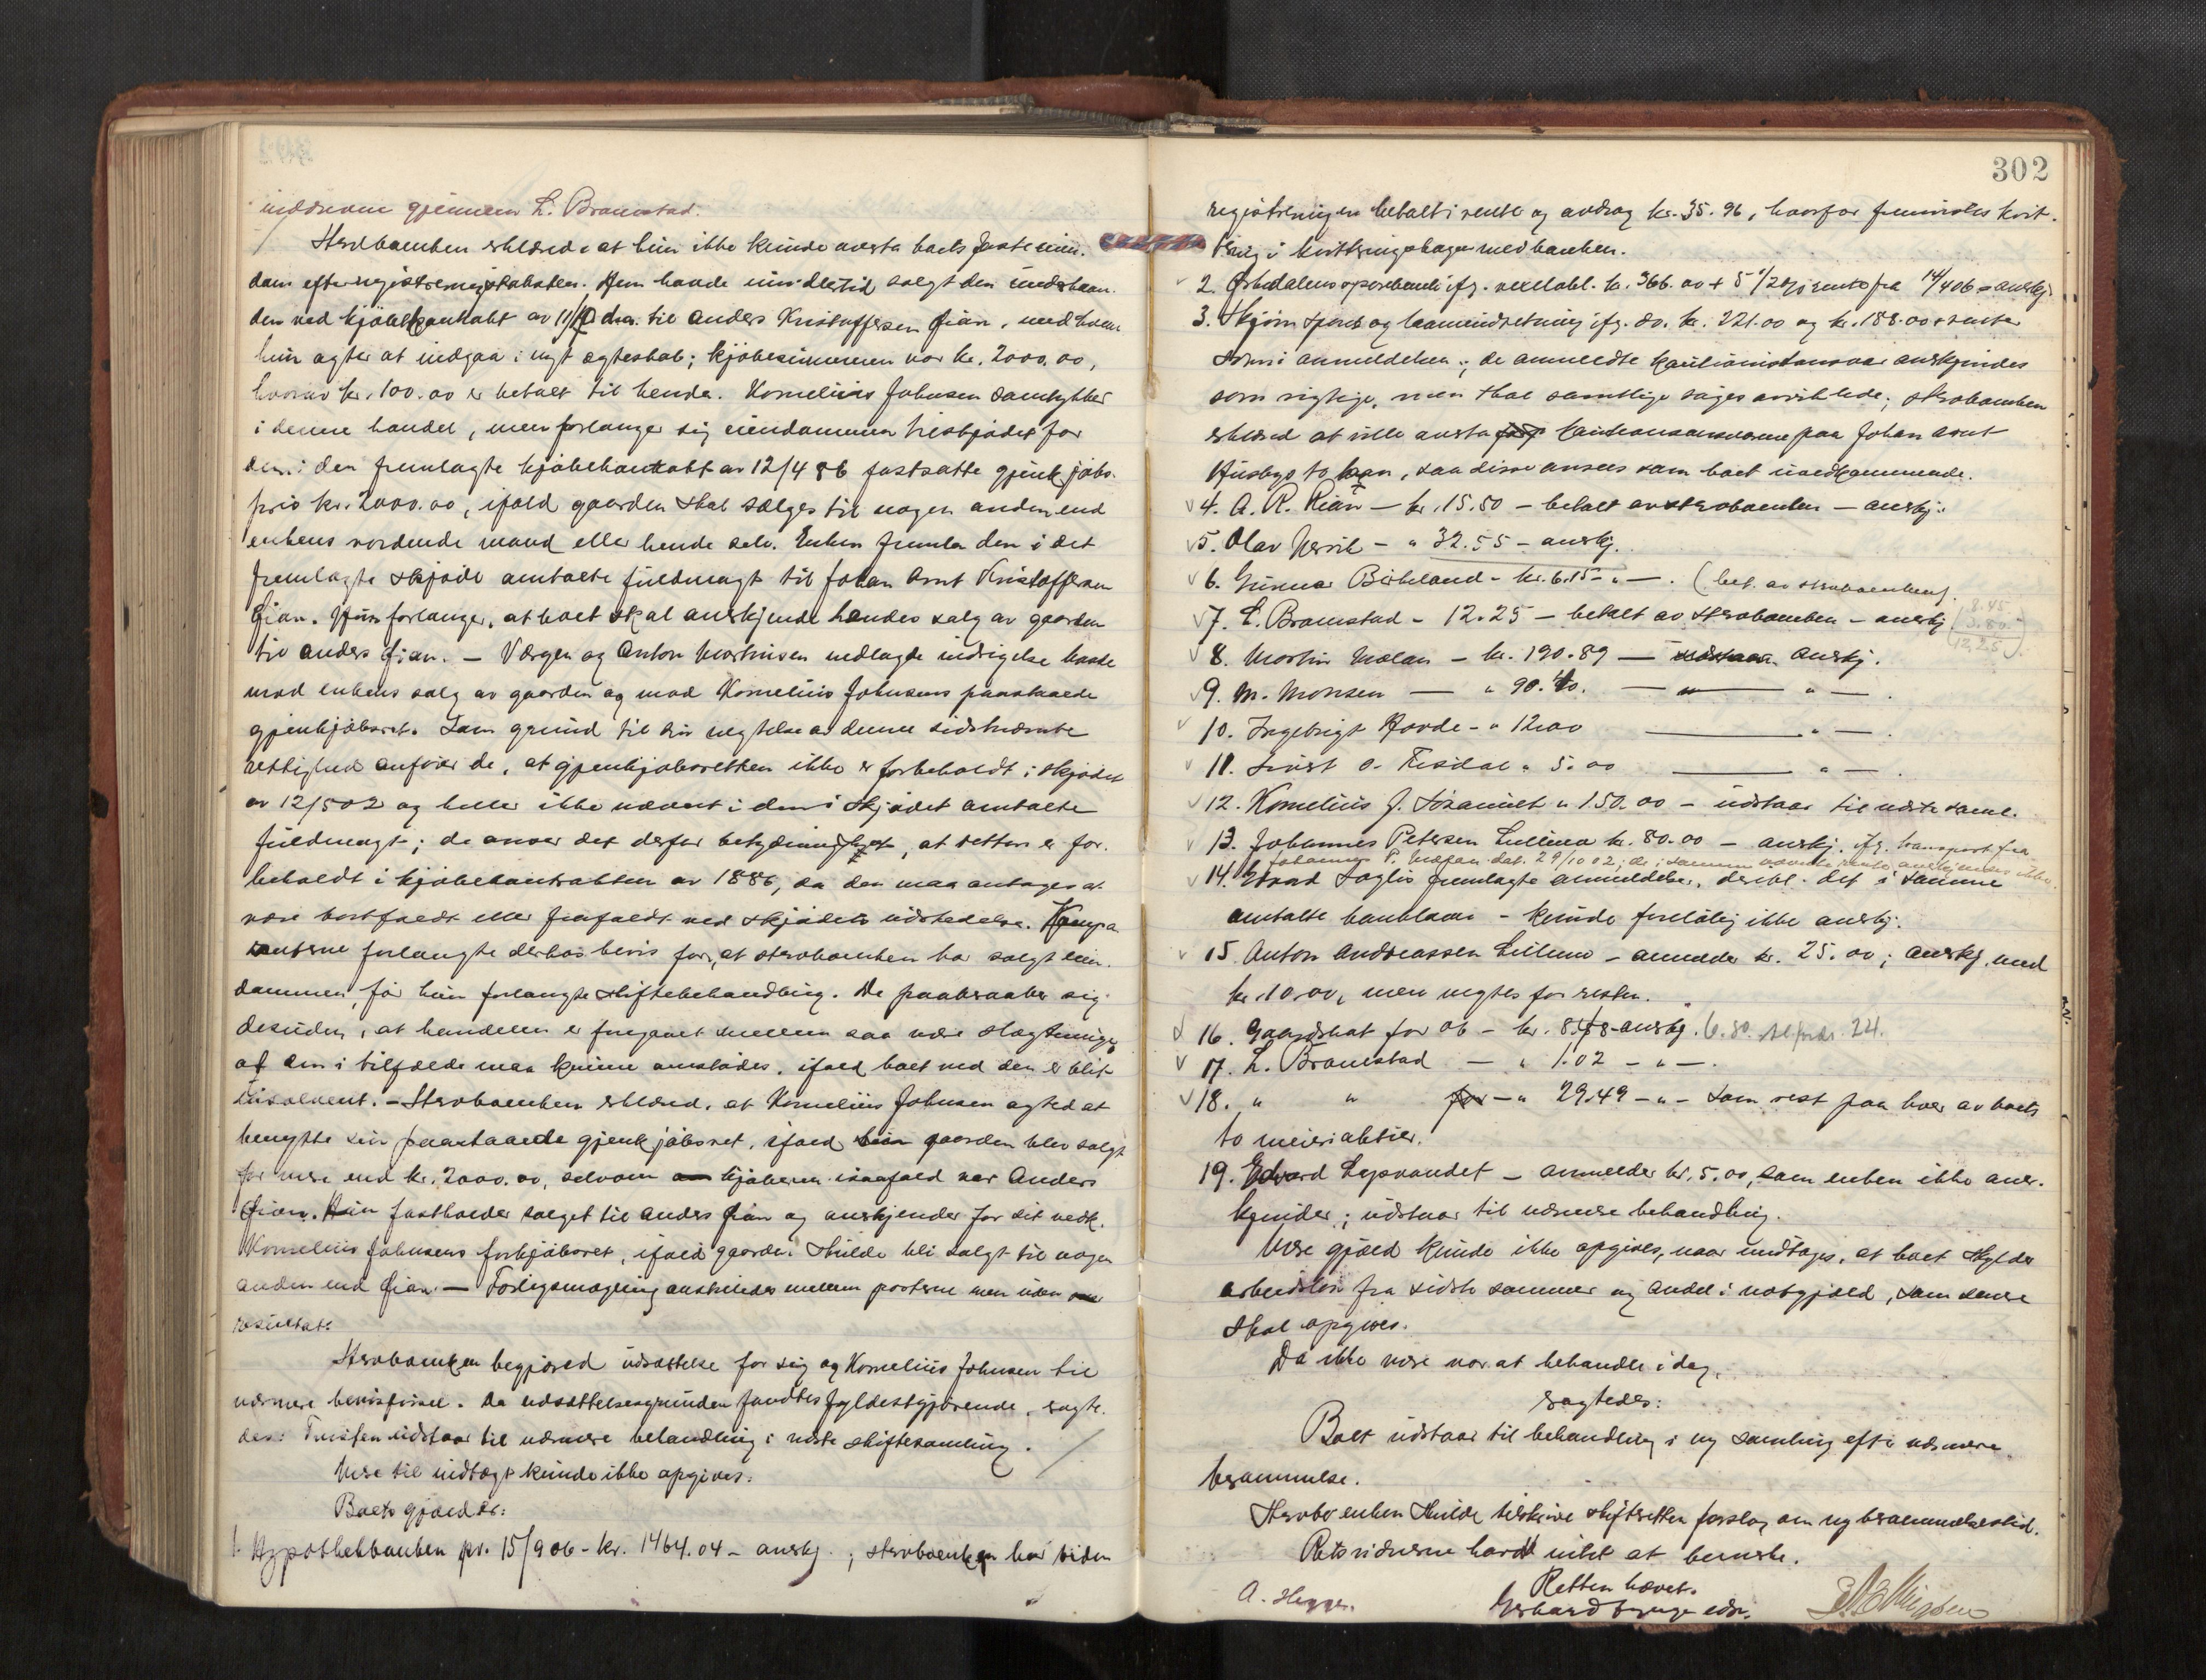 inddrevne gjennem L. Bramstad.
Sterboenken erklærede at hun ikke kunde overta boets faste eien-
dom efter registreringstaksten. Hun havde imidlertid solgt den underhaan-
den ved kjøbekontrakt av 11/10 d.a. til Anders Kristoffersen Qian, med hvem
hun agter at indgaa i nyt egteskab; kjøbesummen var kr. 2000.00,
hvorav kr. 100.00 er betalt til hende. Kornelius Johnsen samtykker
i denne handel, men forlanger sig eiendommen tilskjødet for
den i den fremlagte kjøbekontrakt av 12/4 86 fastsatte gjenkjøbs-
pris kr. 2000.00, ifald gaarden skal sælges til nogen anden end
enkens vordende mand eller hende selv. Enken fremla den i det
fremlagte skjøde omtalte fuldmagt til Johan Arnt Kristoffersen
Qian. Hun forlanger, at boet skal anerkjende hendes salg av gaarden
til Anders Qian. — Værgen og Anton Martinsen nedlagde indsigelse baade
mod enkens salg av gaarden og mod Kornelius Johnsens paastaaede
gjenkjøbsret. Som grund til sin negtelse av denne sidstnævnte
rettighed anfører de, at gjenkjøbsretten ikke er forbeholdt i skjødet
av 12/5 02 og heller ikke nævnt i den i skjødet omtalte
fuldmagt; de anser det derfor betydningsløst, at retten er for-
beholdt i kjøbekontrakten av 1886, da den maa antages at
være bortfaldt eller frafaldt ved skjødets udstedelse. Kompa-
renterne forlangte derhos bevis for, at sterboenken har solgt eien-
dommen, før hun forlangte skiftebehandling. De paaberaaber sig
desuden, at handelen er foregaaet mellem saa nære slægtninge,
at den i tilfælde maa kunne omstødes, ifald boet ved den er blit
insolvent. — Sterboenken erklæred, at Kornelius Johnsen agted at
benytte sin paastaaede gjenkjøbsret, ifald gaarden blev solgt
for mere end kr. 2000.00, selvom kjøberen isaafald var Anders
Qian. Hun fastholder salget til Anders Qian og anerkjender for sit vedk.
Kornelius Johnsens forkjøbsret, ifald gaarden skulde bli solgt til nogen
anden end Qian. — Forligsmægling anstilledes mellem parterne men uden
resultat.
Sterboenken begjæred udsættelse for sig og Kornelius Johnsen til
nærmere bevisførsel. Da udsættelsesgrunden fandtes fyldestgjørende, sagte-
des: Tvisten udstaar til nærmere behandling i næste skiftesamling.
Mere til indtægt kunde ikke opgives.
Boets gjæld er:
1. Hypothekbanken pr. 15/9 06 - kr. 1464.04 - anerkj.; sterboenken har siden
302
registreringen betalt i rente og avdrag kr. 35.96, hvorfor fremvistes kvit-
tering i kvitteringsbogen med banken.
2. Ørkedalens sparebank ifg. vexelobl. kr. 366.00 + 5 1/2 % rente fra 14/4 06 - anerkj.
3. Skjørn Spare og laaneindretning ifg. do. kr. 221.00 og kr. 188.00 + renter
som i anmeldelsen; de anmeldte kautionistansvar anerkjendes
som rigtige, men skal samtlige søges avviklede; sterboenken
erklæred at ville overta kautionsansvarene paa Johan Arnt
Husbys to laan, saa disse ansees som boet uvedkommende.
4. A. R. Rian — kr. 15.50 — betalt av sterboenken — anerkj.
5. Olav Nervik — " 32.55 — anerkj.
6. Gunnar Birkeland - kr. 6.15 - " — . (bet. av sterboenken).
7. L. Bramstad - 12.25 — betalt av sterboenken - anerkj. (8.45 3.80 12.25).
8. Martin Mælan — kr. 190.89 — anerkj.
9. M. Monsen — " 90.40. — " — " — .
10. Ingebrigt Hovde - " 12.00 — " — .
11. Sivert O. Teksdal " 5.00 — " — .
12. Kornelius J. Joramet " 150.00 - udstaar til næste saml.
13. Johannes Petersen Lillemo kr. 80.00 - anerkj. ifg. transport fra
Johannes P. Mælan dat. 29/10 02; de i samme nævnte rente anerkjendes ikke.
14. Edvard Soglio fremlagte anmeldelse, deribl. det i samme
omtalte banklaan - kunde foreløbig ikke anerkj.
15. Anton Andreassen Lillemo - anmelder kr. 25.00; anerkj. med
kr. 10.00, men negtes for resten.
16. Gaardskat for 06 - kr. 8.48 - anerkj. 6.80 24.
17. L. Bramstad — " 1.02 - " — .
18. " " — " 29.49 - " - som rest paa hver av boets
to meieriaktier.
19. Edvard Lysvandet - anmelder kr. 5.00, som enken ikke aner-
kjender; udstaar til nærmere behandling.
Mere gjæld kunde ikke opgives, naar undtages, at boet skylder
arbeidsløn fra sidste sommer og andel i notgjæld, som senere
skal opgives.
Da ikke mere var at behandle i dag,
sagtedes:
Boet udstaar til behandling i ny samling efter nærmere
berammelse.
Sterboenken skulde tilskrive skifteretten forslag om ny berammelsestid.
Retsvidnerne havde intet at bemerke.
Retten hævet.
A. Hegge.